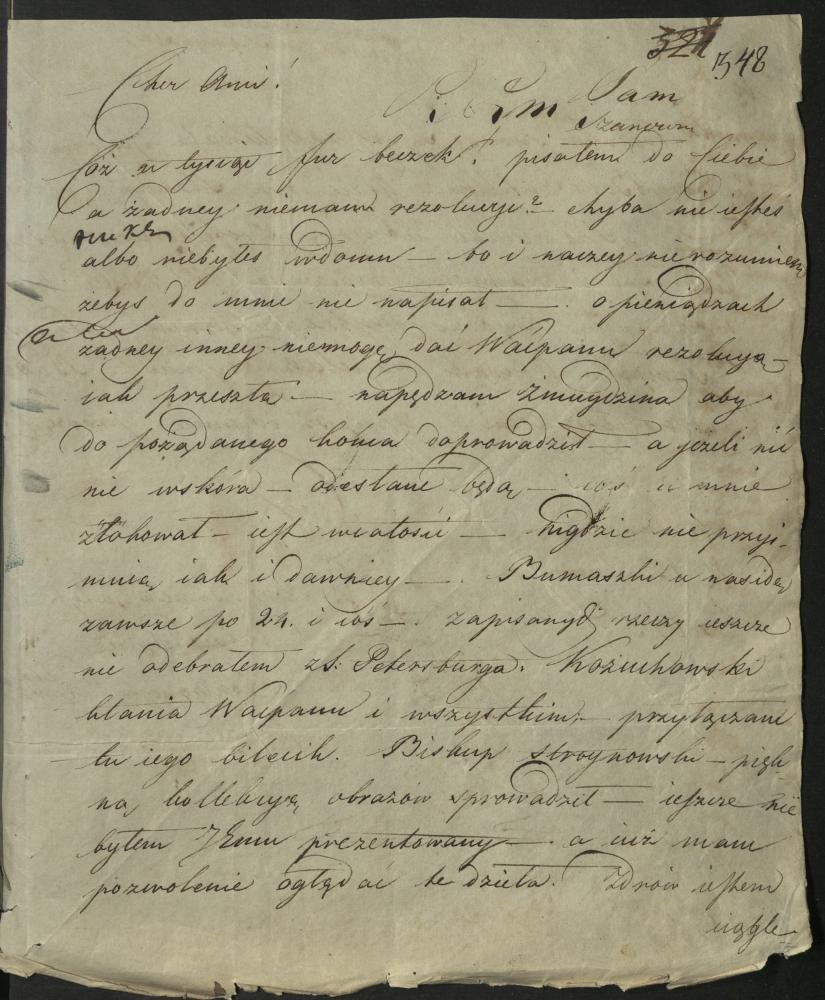 524 348
Cher Ami!
Jam
Szancown
Cóż u tysiąc fur beczek! pisałem do Ciebie
a żadney niemam rezolucyi? – chyba nie iesteś
albo niebyłeś wdomu – bo i naczey nie rozumiem
żebyś do mnie nie napisał — . o pieniądzach
żadney inney niemogę dać Waćpanu rezolucyą –
iak przeszła — napędzam Żmuydzina aby
do pożądanego końca doprowadził — a jeżeli nić
nie wskóra – odesłane będą – ioś u mnie
zlokował – iest wcałości — nigdzie nie przyi-
mnią iak i dawniey — . Bumaszki u nas idą
zawsze po 24. i ioś – . zapisanych rzeczy ieszcze
nie odebrałem z St. Petersburga. Kożuchowski
kłania Waćpanu i wszystkim, – przyłączam
tu iego bilecik. Biskup Stroynowski – pięk-
ną kollekcyą obrazów sprowadził — ieszcze nie
byłem JEmu prezentowany – . a iuż mam
pozwolenie oglądać te dzieła. Zdrów iestem
ciągle